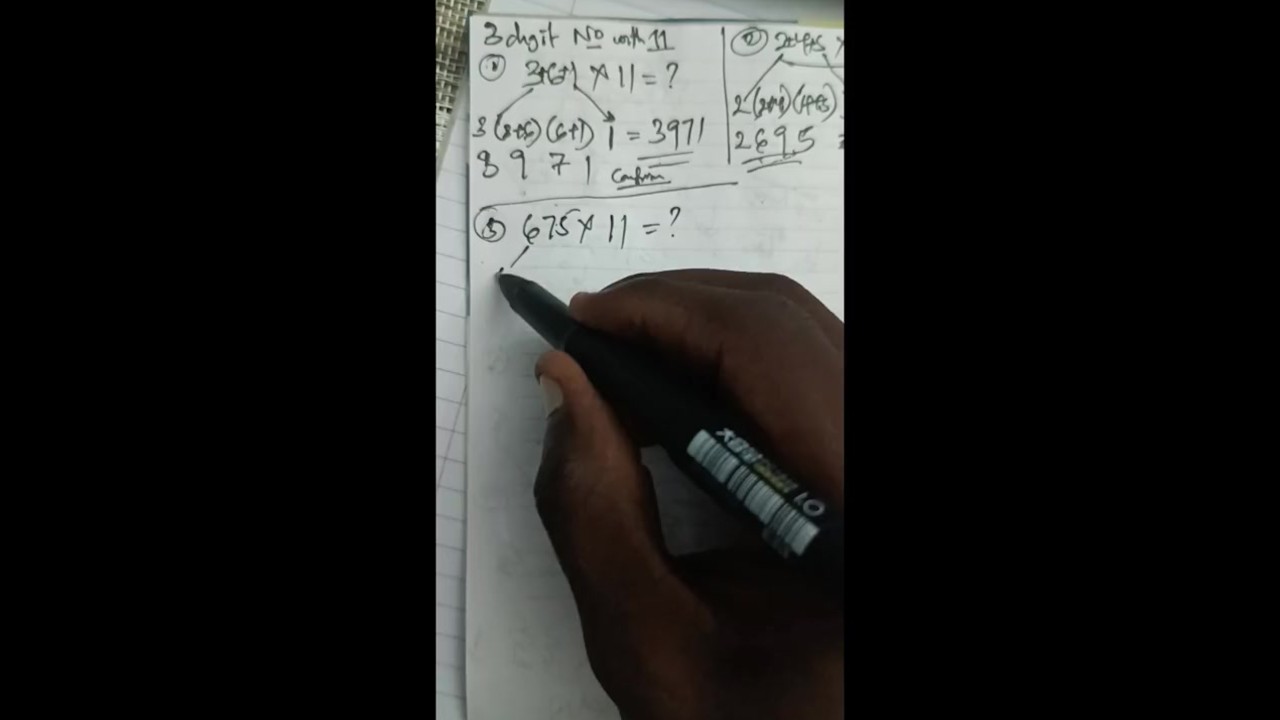 3 digit No with 11
① 3+6+1 × 11 = ?
3 (3+6) (6+1) 1 = 3971
3 9 7 1 Confirm
② 2+4+5 ×
2 (2+4) (4+5)
2 6 9 5 =
③ 675 × 11 = ?